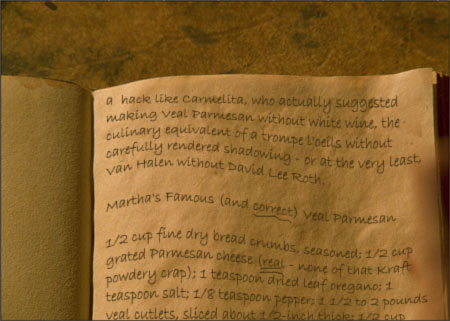 a hack like Carmelita, who actually suggested
making Veal Parmesan without white wine, the
culinary equivalent of a trompe l'oeils without
carefully rendered shadowing - or at the very least,
Van Halen without David Lee Roth.
Martha's Famous (and correct) Veal Parmesan
1/2 cup fine dry bread crumbs, seasoned; 1/2 cup
grated Parmesan cheese (real - none of that Kraft
powdery crap); 1 teaspoon dried leaf oregano; 1
teaspoon salt; 1/8 teaspoon pepper; 1 1/2 to 2 pounds
veal cutlets, sliced about 1/2-inch thick; 1/2 cup